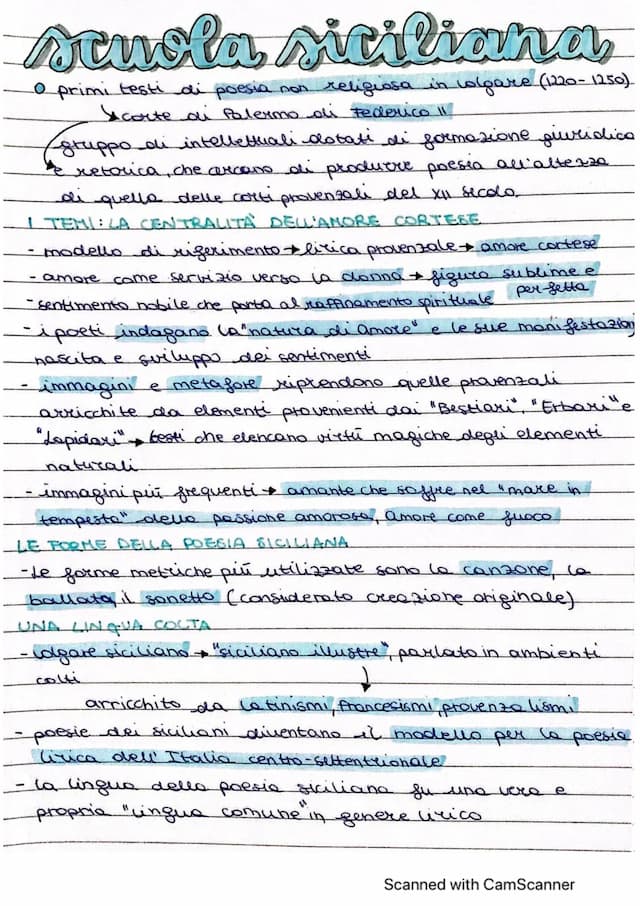 scuola siciliana
primi testi di poesia non religiosa in volgare (1220-1250)
↳ corte di Palermo di Federico II
gruppo di intellettuali dotati di formazione giuridica
e retorica, che cercano di produrre poesia all'altezza
di quella delle corti provenzali del XII secolo.
I TEMI: LA CENTRALITÀ DELL'AMORE CORTESE
- modello di riferimento → lirica provenzale → amore cortese
- amore come servizio verso la donna → figura sublime e
perfetta
- sentimento nobile che porta al raffinamento spirituale
- i poeti indagano la "natura di amore" e le sue manifestazioni
nascita e sviluppo dei sentimenti
- immagini e metafore riprendono quelle provenzali
arricchite da elementi provenienti dai "Bestiari", "Erbari" e
"Lapidari" → testi che elencano virtù magiche degli elementi
naturali
- immagini più frequenti → amante che soffre nel "mare in
tempesta" della passione amorosa, amore come fuoco
LE FORME DELLA POESIA SICILIANA
- Le forme metriche più utilizzate sono la canzone, la
ballata, il sonetto (considerato creazione originale)
UNA LINGUA COLTA
- volgare siciliano → "siciliano illustre", parlato in ambienti
colti
arricchito da latinismi, francesismi, provenzalismi
- poesie dei siciliani diventano il modello per la poesia
lirica dell'Italia centro-settentrionale
- la lingua della poesia siciliana fu una vera e
propria "lingua comune" in genere lirico
Scanned with CamScanner